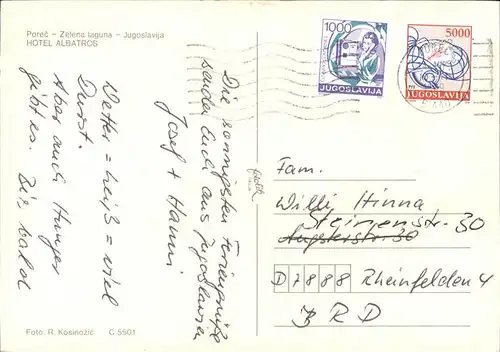 Poreč – Zelena laguna – Jugoslavija
HOTEL ALBATROS
Die sonnigsten Feriengrüße
sendet Euch aus Jugoslawien
Josef + Hanni
Wetter = heiß = viel
Durst.
Aber auch Hunger
gibt es. Bis bald
Foto: R. Kosinožić C 5501
1000
JUGOSLAVIJA
5000
PTT
JUGOSLAVIJA
Fam.
Willi Hinna
Steinenstr. 30
Augsterstr. 30
D 7888 Rheinfelden 4
BRD